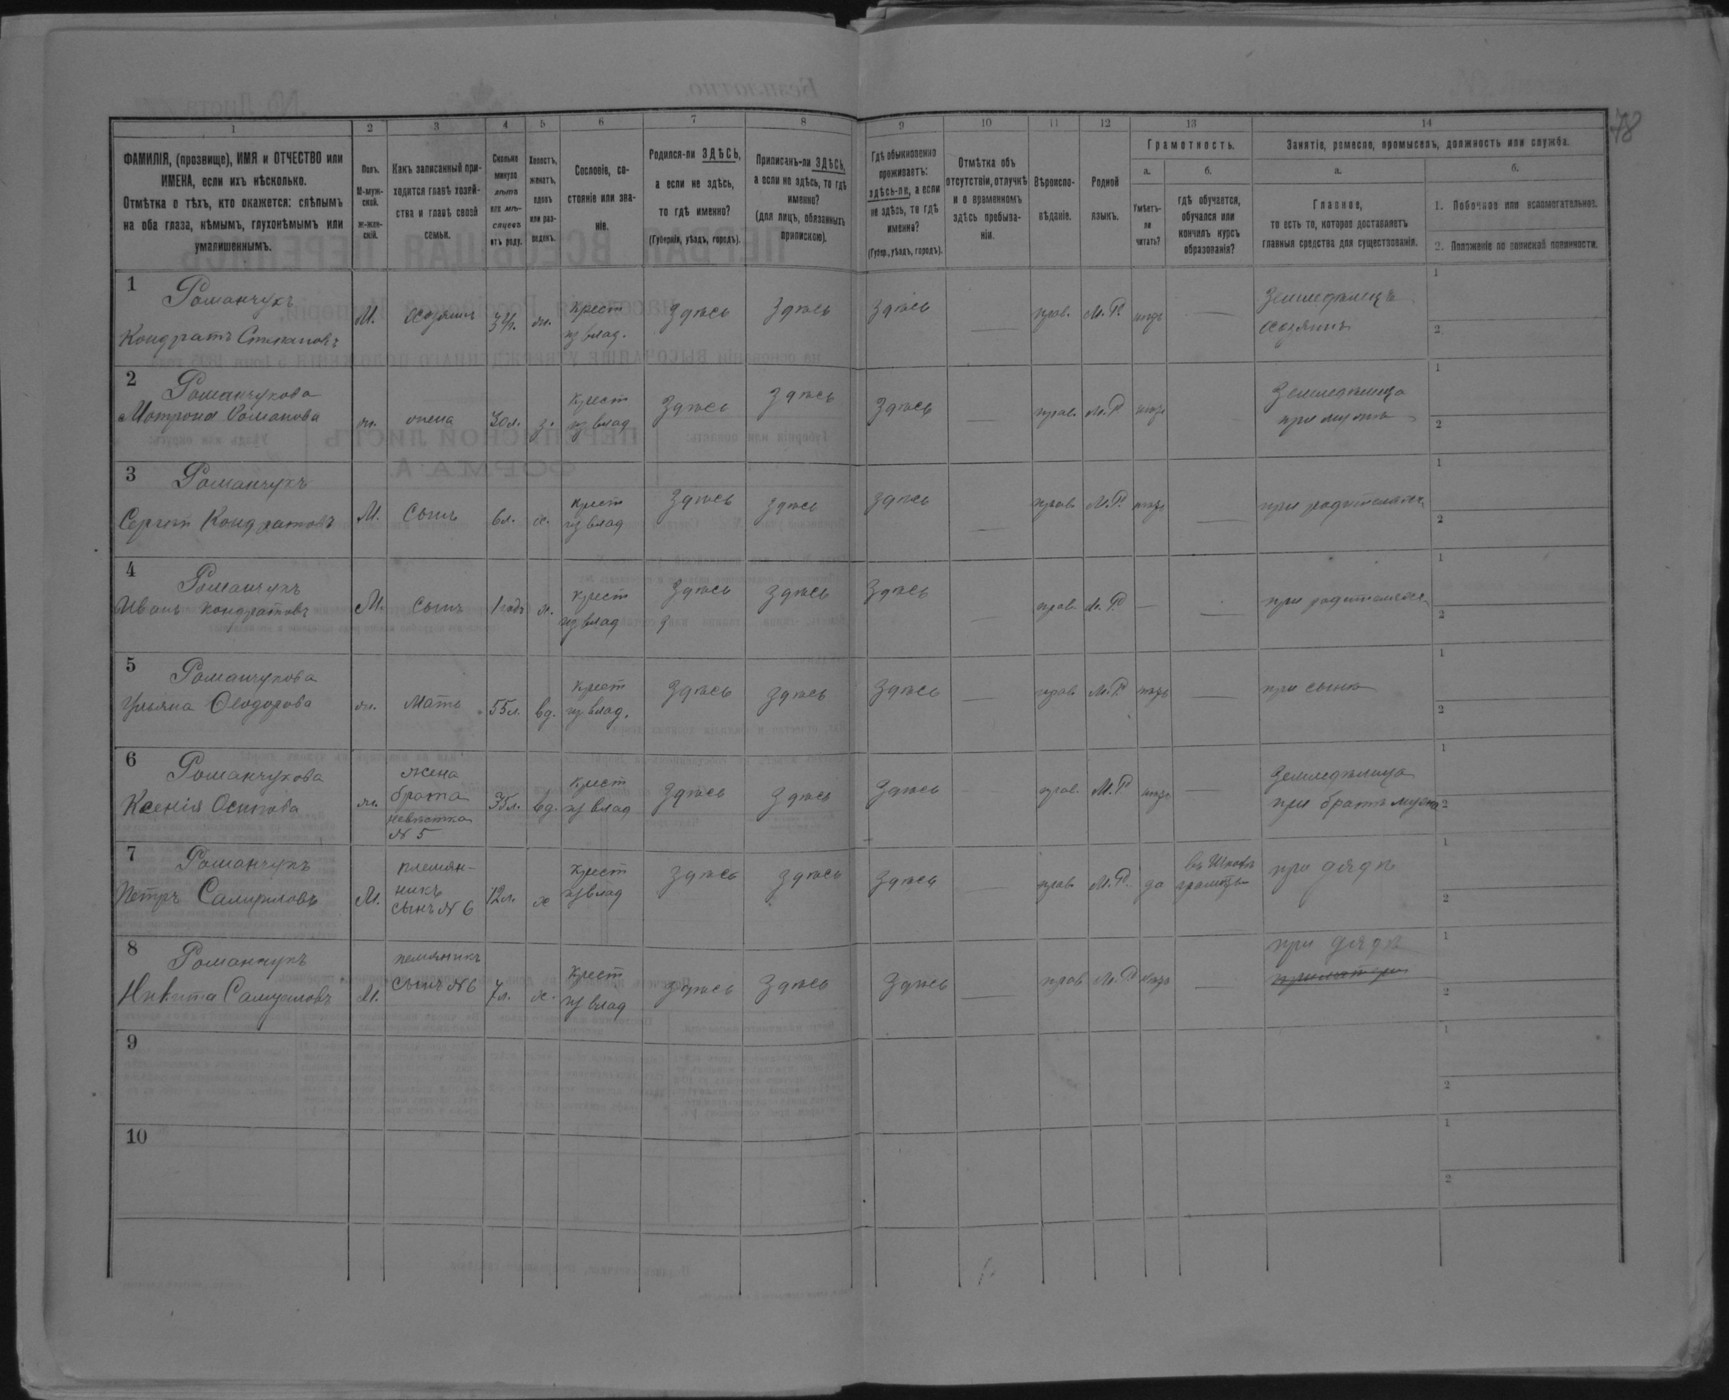 78
1
2
3
4
5
6
7
8
9
10
11
12
13
14
ФАМИЛІЯ, (прозвище), ИМЯ и ОТЧЕСТВО или
ИМЕНА, если ихъ нѣсколько.
Отмѣтка о тѣхъ, кто окажется: слѣпымъ
на оба глаза, нѣмымъ, глухонѣмымъ или
умалишеннымъ.
Полъ.
М-муж-
ской.
ж-жен-
скій.
Какъ записанный при-
ходится главѣ хозяй-
ства и главѣ своей
семьи.
Сколько
минуло
лѣтъ
или мѣ-
сяцевъ
отъ роду.
Холостъ,
женатъ,
вдовъ
или раз-
веденъ.
Сословіе, со-
стояніе или зва-
ніе.
Родился-ли ЗДѢСЬ,
а если не здѣсь,
то гдѣ именно?
(Губернія, уѣздъ, городъ).
Приписанъ-ли ЗДѢСЬ,
а если не здѣсь, то гдѣ
именно?
(для лицъ, обязанныхъ
припискою).
Гдѣ обыкновенно
проживаетъ:
здѣсь-ли, а если
не здѣсь, то гдѣ
именно?
(Губер., уѣздъ, городъ).
Отмѣтка объ
отсутствіи, отлучкѣ
и о временномъ
здѣсь пребыва-
ніи.
Вѣроиспо-
вѣданіе.
Родной
языкъ.
Грамотность.
а.
Умѣетъ-
ли
читать?
б.
гдѣ обучается,
обучался или
кончилъ курсъ
образованія?
Занятіе, ремесло, промыселъ, должность или служба.
а.
Главное,
то есть то, которое доставляетъ
главныя средства для существованія.
б.
1. Побочное или вспомогательное.
2. Положеніе по воинской повинности.
1
Романчукъ
Кондратъ Степановъ
М. Хозяинъ ж. крест
из влад. здѣсь здѣсь здѣсь прав. М.Р. нѣтъ
Земледѣлецъ
хозяинъ
1
2
2
Романчукова
Мотрона Романова
ж. жена 30л. з. крест
из влад здѣсь здѣсь здѣсь прав. М.Р. нѣтъ
Земледѣлица
при мужѣ
1
2
3
Романчукъ
Сергій Кондратовъ
М. Сынъ 6л. х. крест
из влад здѣсь здѣсь здѣсь прав. М.Р. нѣтъ
при родителяхъ
1
2
4
Романчукъ
Иванъ Кондратовъ
М. Сынъ 1 годъ х. крест
из влад здѣсь здѣсь здѣсь прав. М.Р. —
при родителяхъ
1
2
5
Романчукова
Ульяна Ѳеодорова
ж. Мать 55л. вд. крест
из влад. здѣсь здѣсь здѣсь прав. М.Р. нѣтъ
при сынѣ
1
2
6
Романчукова
Ксенія Осипова
ж. жена
брата
невѣстка
№ 5
35л. вд. крест
из влад здѣсь здѣсь здѣсь прав. М.Р. нѣтъ
Земледѣлица
при братѣ мужа
1
2
7
Романчукъ
Петръ Самуиловъ
М. племян-
никъ
сынъ № 6
12л. х крест
из влад здѣсь здѣсь здѣсь прав. М.Р. да
въ Школѣ
грамоты
при дядѣ
1
2
8
Романчукъ
Никита Самуиловъ
М. племянникъ
сынъ № 6
7л. х. крест
из влад здѣсь здѣсь здѣсь прав М.Р нѣтъ
при дядѣ
1
2
9
1
2
10
1
2